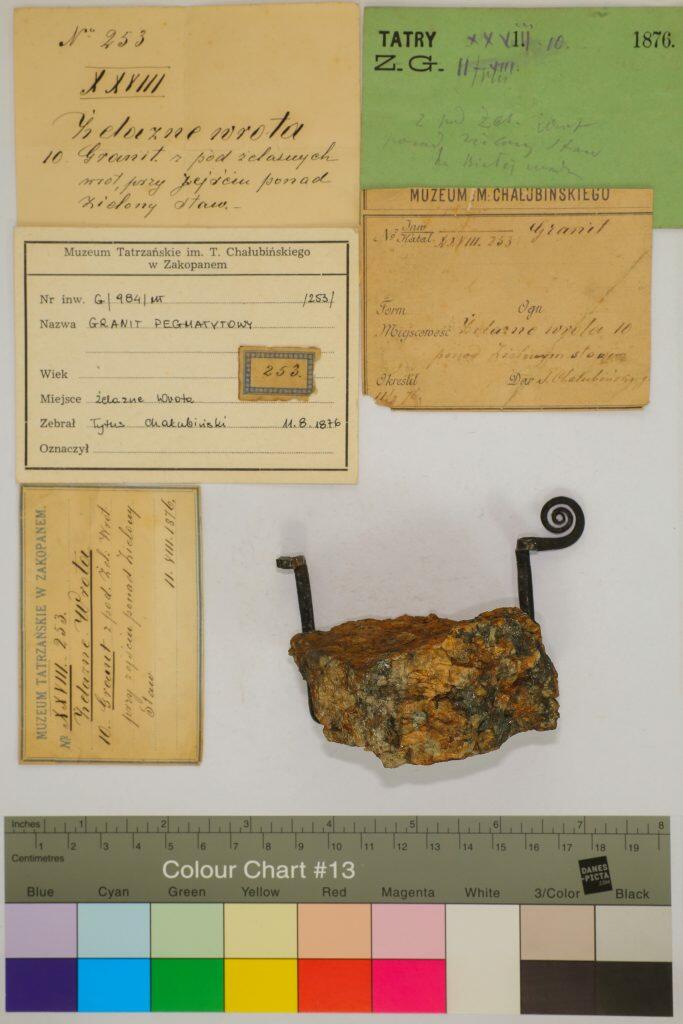 No 253
XXVIII
Żelazne wrota
10. Granit z pod żelaznych
wrót, przy zejściu ponad
Zielony Staw.
TATRY XXVIII 10. 1876.
Z. G. 11 VIII
z pod Żel. Wrot
ponad zielony Staw
MUZEUM IM. CHAŁUBIŃSKIEGO
No Inw. Katal. XXVIII. 253 Granit
Form Ogn
Miejscowość Żelazne wrota 10
ponad Zielonym stawem
Określił Dar T. Chałubińskiego
Muzeum Tatrzańskie im. T. Chałubińskiego
w Zakopanem
Nr inw. G/984/MT /253/
Nazwa GRANIT PEGMATYTOWY
Wiek
253.
Miejsce żelazne Wrota
Zebrał Tytus Chałubiński 11.8.1876
Oznaczył
MUZEUM TATRZAŃSKIE W ZAKOPANEM.
No XXVIII. 253.
Żelazne Wrota
10. Granit z pod Żel. Wrót
przy zejściu ponad Zielony
Staw
11. VIII. 1876.
Inches 1 2 3 4 5 6 7 8
1 2 3 4 5 6 7 8 9 10 11 12 13 14 15 16 17 18 19
Centimetres
Colour Chart #13
DANES
-PICTA
.COM
Blue Cyan Green Yellow Red Magenta White 3/Color Black